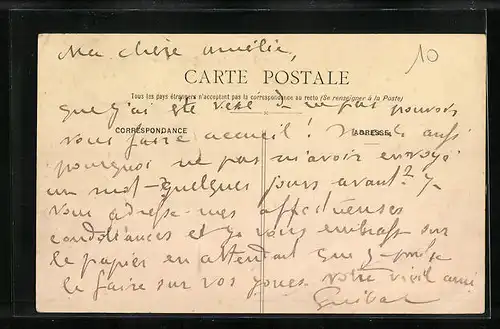 Ma chère Amélie,
10
CARTE POSTALE
Tous les pays étrangers n'acceptent pas la correspondance au recto (Se renseigner à la Poste)
que j'ai été vexé de ne pas pouvoir
CORRESPONDANCE
ADRESSE
vous faire accueil ! Mais aussi
pourquoi ne pas m'avoir envoyé
un mot quelques jours avant ? Je
vous adresse mes affectueuses
condoléances et je vous embrasse sur
le papier en attendant que je puisse
le faire sur vos joues. Votre vieil ami